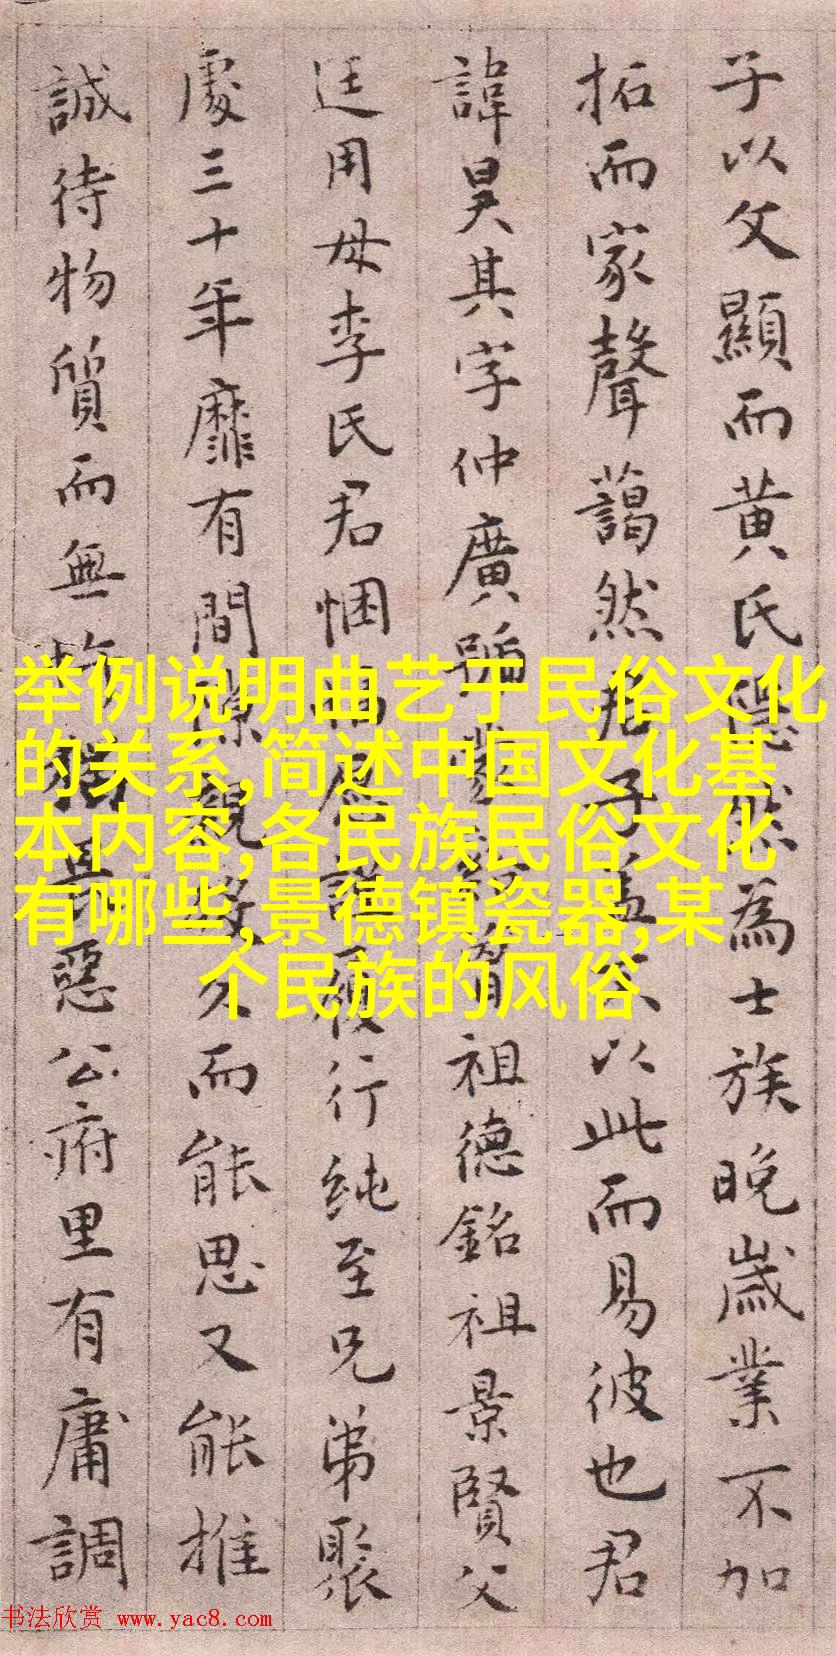 子以父顯而黄氏隱然為士族晚嵗業不加
拓而家聲藹然君子盖不以此而易彼也君
諱昊其字仲廣號祖德銘祖景賢父
廷用母李氏君悃履行純至兄弟聚
處三十年靡有間而能思又能推
誠待物質而無惡公府里有庸調
举例说明曲艺于民俗文化
的关系,简述中国文化基
本内容,各民族民俗文化
有哪些,景德镇瓷器,某
个民族的风俗
书法欣赏 www.yac8.com